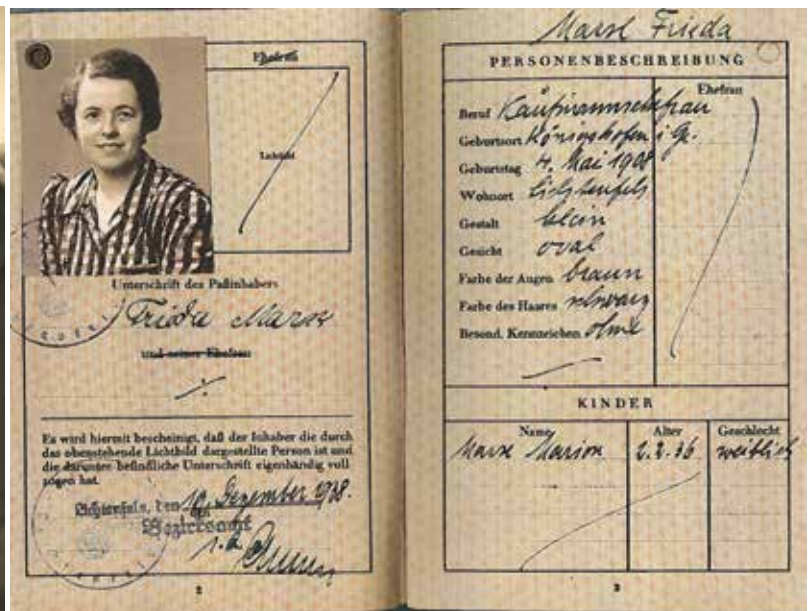 Ehefrau
Lichtbild
Unterschrift des Paßinhabers
Frieda Marx
und seiner Ehefrau
Es wird hiermit bescheinigt, daß der Inhaber die durch
das obenstehende Lichtbild dargestellte Person ist und
die darunter befindliche Unterschrift eigenhändig voll
zogen hat.
Lichtenfels, den 10. Dezember 1938.
Bezirksamt
2
Marx Frieda
PERSONENBESCHREIBUNG
Ehefrau
Beruf Kaufmannsehefrau
Geburtsort Königshofen i. G.
Geburtstag 4. Mai 1908
Wohnort Lichtenfels
Gestalt klein
Gesicht oval
Farbe der Augen braun
Farbe des Haares schwarz
Besond. Kennzeichen ohne
KINDER
Name Alter Geschlecht
Marx Marion 2.2.36 weiblich
3